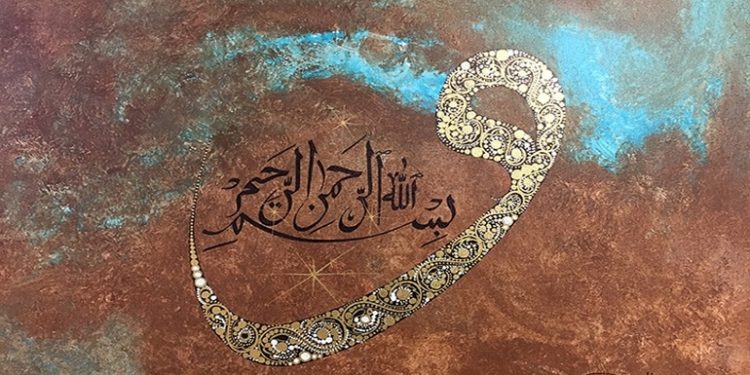 بِسْمِ اللّٰهِ الرَّحْمٰنِ الرَّحِيمِ
و